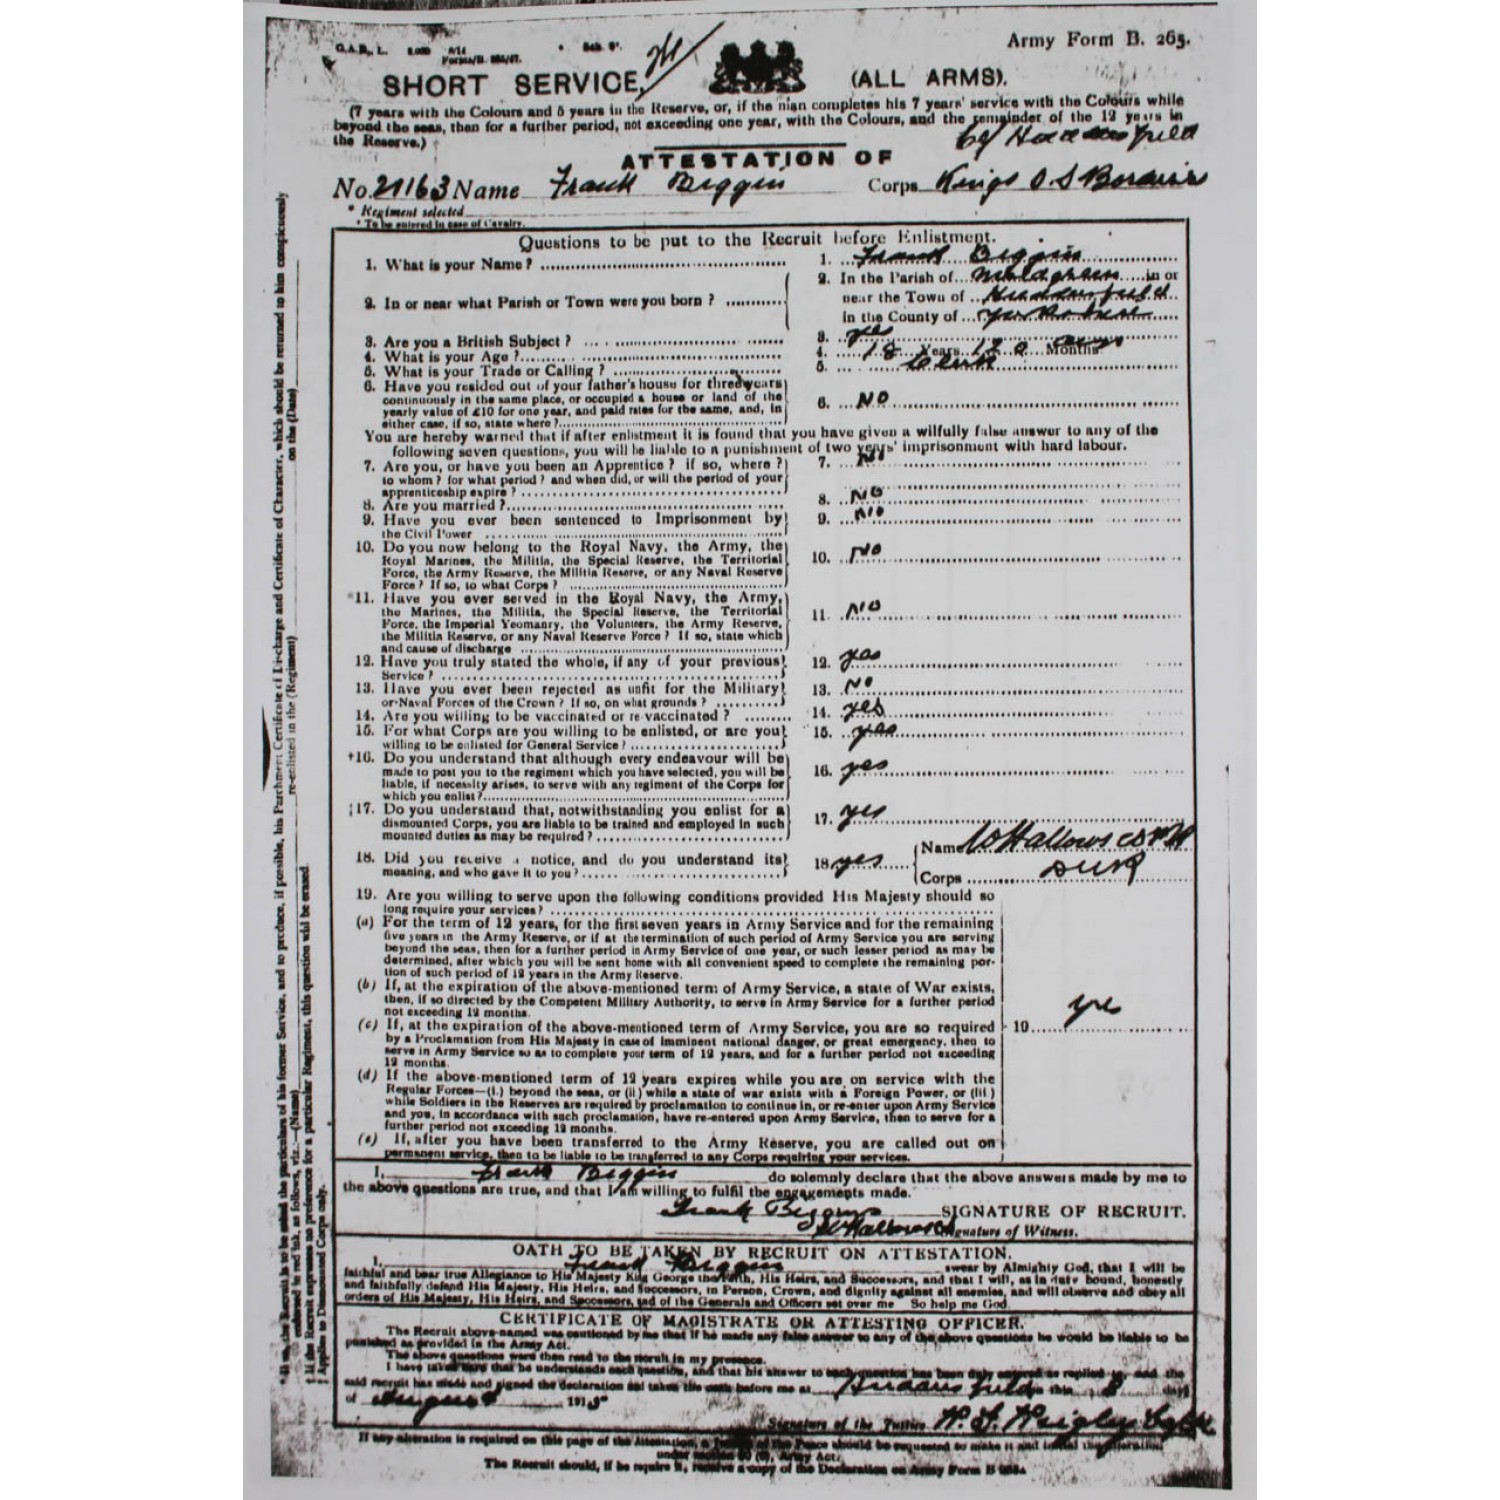 Army Form B. 265.
SHORT SERVICE. (ALL ARMS).
(7 years with the Colours and 5 years in the Reserve, or, if the man completes his 7 years' service with the Colours while
beyond the seas, then for a further period, not exceeding one year, with the Colours, and the remainder of the 12 years in
the Reserve.)
Huddersfield
ATTESTATION OF
No. 21163 Name Frank Biggin Corps Kings O. S Borderers
* Regiment selected
* To be entered in case of Cavalry.
Questions to be put to the Recruit before Enlistment.
1. What is your Name? 1. Frank Biggin
2. In or near what Parish or Town were you born? 2. In the Parish of Moldgreen in or
near the Town of Huddersfield
in the County of Yorkshire
3. Are you a British Subject? 3. yes
4. What is your Age? 4. 18 Years Months
5. What is your Trade or Calling? 5. Clerk
6. Have you resided out of your father's house for three years
continuously in the same place, or occupied a house or land of the
yearly value of £10 for one year, and paid rates for the same, and, in
either case, if so, state where? 6. NO
You are hereby warned that if after enlistment it is found that you have given a wilfully false answer to any of the
following seven questions, you will be liable to a punishment of two years' imprisonment with hard labour.
7. Are you, or have you been an Apprentice? if so, where?
to whom? for what period? and when did, or will the period of your
apprenticeship expire? 7. No
8. Are you married? 8. NO
9. Have you ever been sentenced to Imprisonment by
the Civil Power 9. NO
10. Do you now belong to the Royal Navy, the Army, the
Royal Marines, the Militia, the Special Reserve, the Territorial
Force, the Army Reserve, the Militia Reserve, or any Naval Reserve
Force? If so, to what Corps? 10. NO
*11. Have you ever served in the Royal Navy, the Army,
the Marines, the Militia, the Special Reserve, the Territorial
Force, the Imperial Yeomanry, the Volunteers, the Army Reserve,
the Militia Reserve, or any Naval Reserve Force? If so, state which
and cause of discharge 11. NO
12. Have you truly stated the whole, if any of your previous
Service? 12. yes
13. Have you ever been rejected as unfit for the Military
or Naval Forces of the Crown? If so, on what grounds? 13. NO
14. Are you willing to be vaccinated or re-vaccinated? 14. yes
15. For what Corps are you willing to be enlisted, or are you
willing to be enlisted for General Service? 15. yes
†16. Do you understand that although every endeavour will be
made to post you to the regiment which you have selected, you will be
liable, if necessity arises, to serve with any regiment of the Corps for
which you enlist? 16. yes
‡17. Do you understand that, notwithstanding you enlist for a
dismounted Corps, you are liable to be trained and employed in such
mounted duties as may be required? 17. yes
18. Did you receive a notice, and do you understand its
meaning, and who gave it to you? 18. yes Name W Hallows
Corps DWR
19. Are you willing to serve upon the following conditions provided His Majesty should so
long require your services?
(a) For the term of 12 years, for the first seven years in Army Service and for the remaining
five years in the Army Reserve, or if at the termination of such period of Army Service you are serving
beyond the seas, then for a further period in Army Service of one year, or such lesser period as may be
determined, after which you will be sent home with all convenient speed to complete the remaining por-
tion of such period of 12 years in the Army Reserve.
(b) If, at the expiration of the above-mentioned term of Army Service, a state of War exists,
then, if so directed by the Competent Military Authority, to serve in Army Service for a further period
not exceeding 12 months.
(c) If, at the expiration of the above-mentioned term of Army Service, you are so required
by a Proclamation from His Majesty in case of imminent national danger, or great emergency, then to
serve in Army Service so as to complete your term of 12 years, and for a further period not exceeding
12 months.
19. yes
(d) If the above-mentioned term of 12 years expires while you are on service with the
Regular Forces—(i.) beyond the seas, or (ii) while a state of war exists with a Foreign Power, or (iii)
while Soldiers in the Reserves are required by proclamation to continue in, or re-enter upon Army Service
and you, in accordance with such proclamation, have re-entered upon Army Service, then to serve for a
further period not exceeding 12 months.
(e) If, after you have been transferred to the Army Reserve, you are called out on
permanent service, then to be liable to be transferred to any Corps requiring your services.
I, Frank Biggin do solemnly declare that the above answers made by me to
the above questions are true, and that I am willing to fulfil the engagements made.
Frank Biggin SIGNATURE OF RECRUIT.
W Hallows Signature of Witness.
OATH TO BE TAKEN BY RECRUIT ON ATTESTATION.
I, Frank Biggin swear by Almighty God, that I will be
faithful and bear true Allegiance to His Majesty King George the Fifth, His Heirs, and Successors, and that I will, as in duty bound, honestly
and faithfully defend His Majesty, His Heirs, and Successors, in Person, Crown, and dignity against all enemies, and will observe and obey all
orders of His Majesty, His Heirs, and Successors, and of the Generals and Officers set over me So help me God.
CERTIFICATE OF MAGISTRATE OR ATTESTING OFFICER.
The Recruit above-named was cautioned by me that if he made any false answer to any of the above questions he would be liable to be
punished as provided in the Army Act.
The above questions were then read to the recruit in my presence.
I have taken care that he understands each question, and that his answer to each question has been duly entered as replied to, and the
said recruit has made and signed the declaration and taken the oath before me at Huddersfield on this 8 day
of August 1915
Signature of the Justice
If any alteration is required on this page of the Attestation, a Justice of the Peace should be requested to make it and initial the alteration
under section 80 (6), Army Act.
The Recruit should, if he require it, receive a copy of the Declaration on Army Form B
* If so, the Recruit is to be asked the particulars of his former Service, and to produce, if possible, his Parchment Certificate of Discharge and Certificate of Character, which should be returned to him conspicuously
endorsed in red ink, as follows, viz.:—(Name) re-enlisted in the (Regiment) on the (Date)
† If the Recruit expresses no preference for a particular Regiment, this question will be erased.
‡ Applies to Dismounted Corps only.